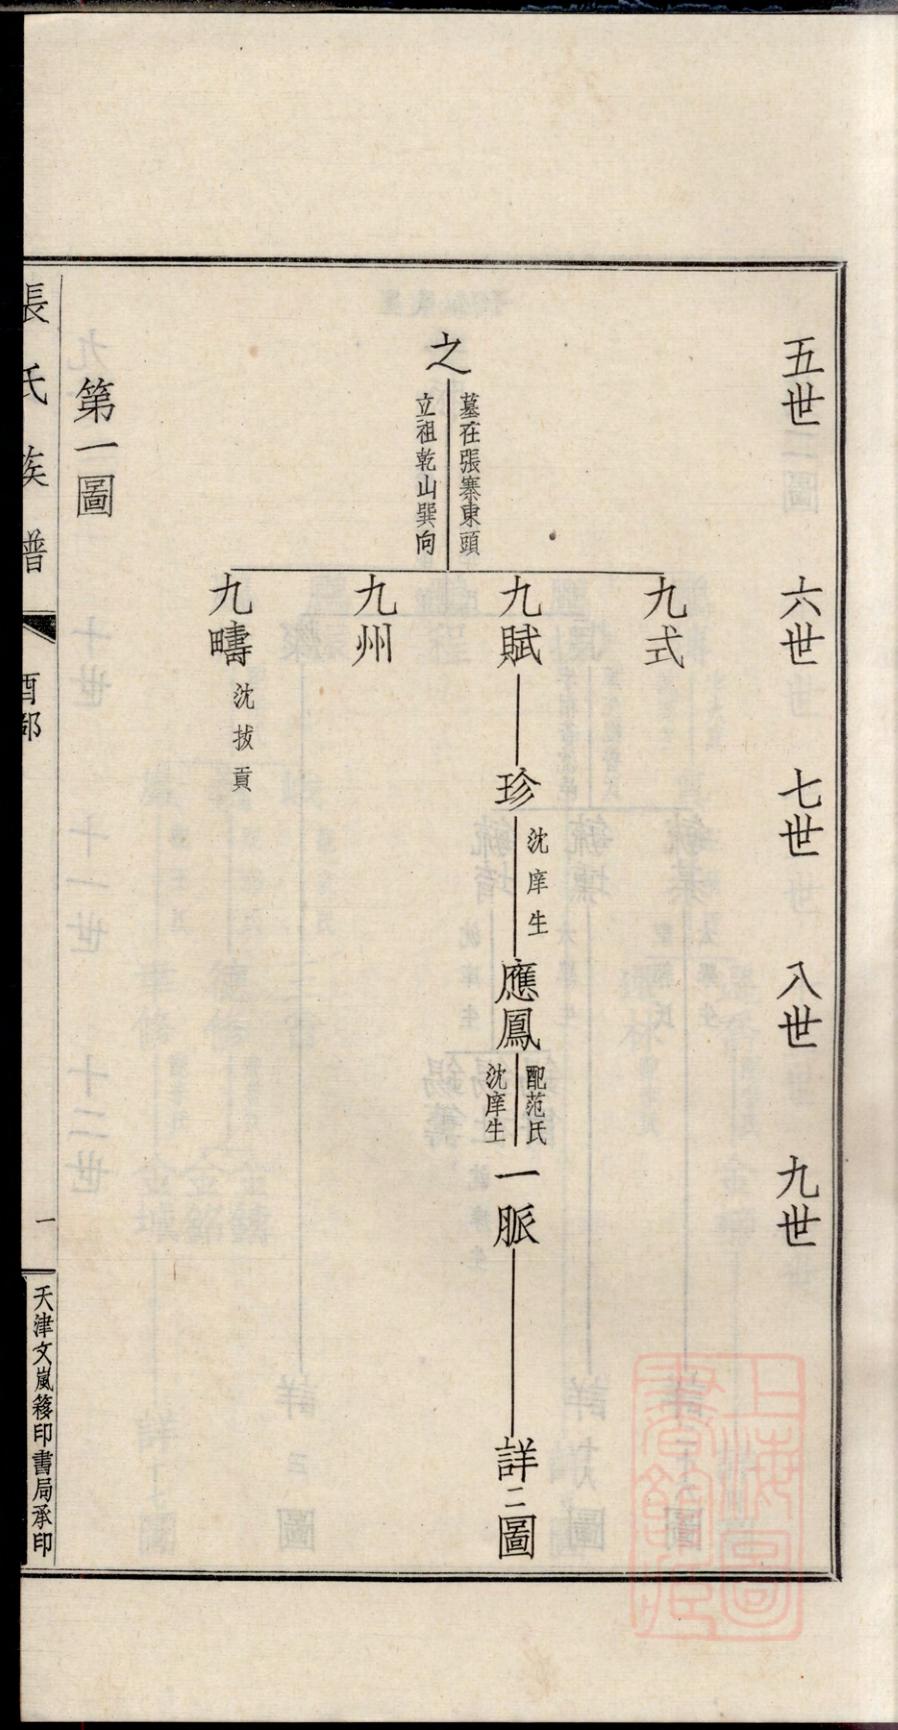 五世
六世
七世
八世
九世
之
墓在張寨東頭
立祖乾山巽向
九式
九賦
九州
九疇
沈拔貢
珍
沈庠生
應鳳
配范氏
沈庠生
一脈
詳二圖
第一圖
張氏族譜
酉部
一
天津文嵐簃印書局承印
上海圖書館藏